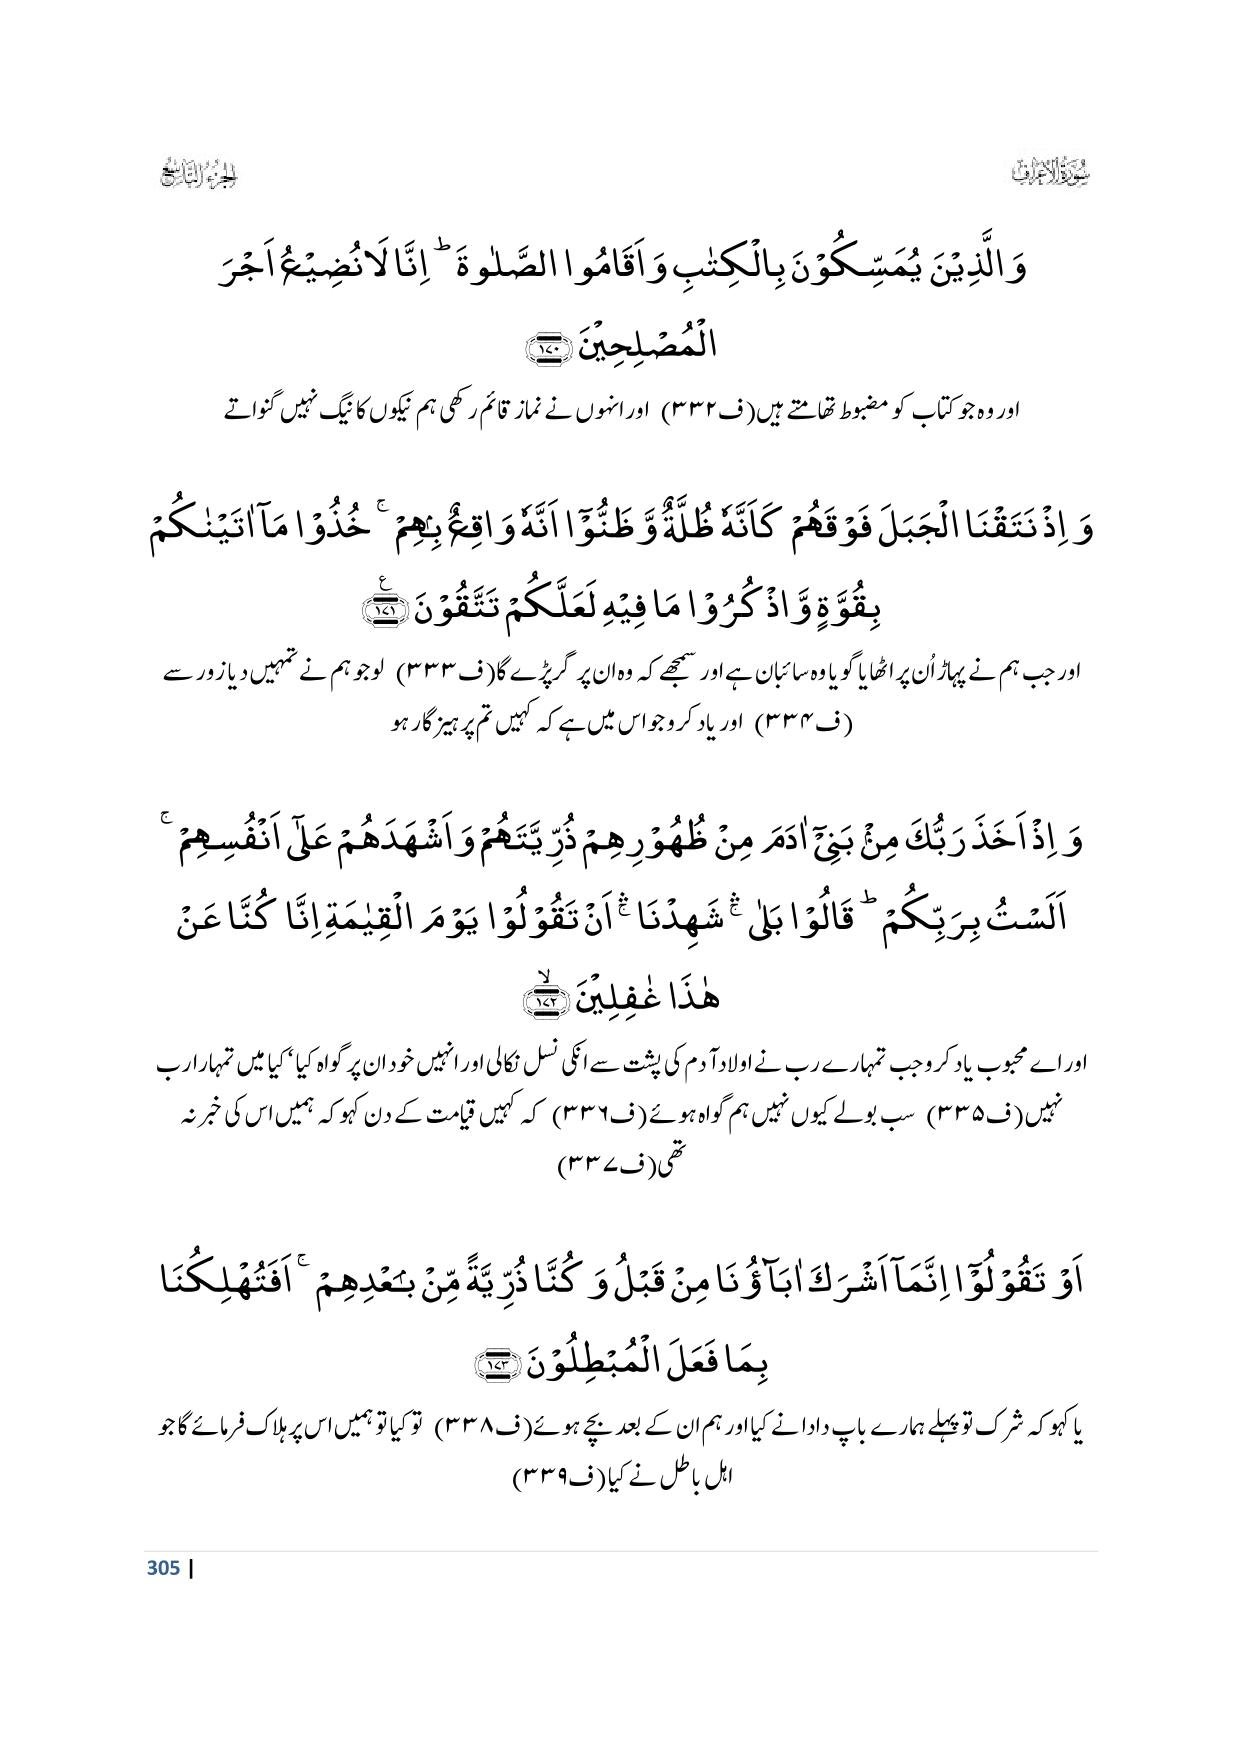 سُوْرَةُ الْاَعْرَاف
الجزء التاسع
وَ الَّذِیْنَ یُمَسِّكُوْنَ بِالْكِتٰبِ وَ اَقَامُوا الصَّلٰوةَ ؕ اِنَّا لَا نُضِیْعُ اَجْرَ
الْمُصْلِحِیْنَ ﴿۱۷۰﴾
اور وہ جو کتاب کو مضبوط تھامتے ہیں(ف۳۳۲) اور انہوں نے نماز قائم رکھی ہم نیکوں کا نیگ نہیں گنواتے
وَ اِذْ نَتَقْنَا الْجَبَلَ فَوْقَهُمْ كَاَنَّهٗ ظُلَّةٌ وَّ ظَنُّوْۤا اَنَّهٗ وَاقِعٌۢ بِهِمْ ۚ خُذُوْا مَاۤ اٰتَیْنٰكُمْ
بِقُوَّةٍ وَّ اذْكُرُوْا مَا فِیْهِ لَعَلَّكُمْ تَتَّقُوْنَ ﴿۱۷۱﴾ ع
اور جب ہم نے پہاڑ اُن پر اٹھایا گویا وہ سائبان ہے اور سمجھے کہ وہ ان پر گر پڑے گا(ف۳۳۳) لو جو ہم نے تمہیں دیا زور سے
(ف۳۳۴) اور یاد کرو جو اس میں ہے کہ کہیں تم پرہیزگار ہو
وَ اِذْ اَخَذَ رَبُّكَ مِنْۢ بَنِیْۤ اٰدَمَ مِنْ ظُهُوْرِهِمْ ذُرِّیَّتَهُمْ وَ اَشْهَدَهُمْ عَلٰۤی اَنْفُسِهِمْ ۚ
اَلَسْتُ بِرَبِّكُمْ ؕ قَالُوْا بَلٰی ۛۚ شَهِدْنَا ۛۚ اَنْ تَقُوْلُوْا یَوْمَ الْقِیٰمَةِ اِنَّا كُنَّا عَنْ
هٰذَا غٰفِلِیْنَ ﴿۱۷۲﴾ ۙ
اور اے محبوب یاد کرو جب تمہارے رب نے اولاد آدم کی پشت سے انکی نسل نکالی اور انہیں خود ان پر گواہ کیا‘ کیا میں تمہارا رب
نہیں(ف۳۳۵) سب بولے کیوں نہیں ہم گواہ ہوئے(ف۳۳۶) کہ کہیں قیامت کے دن کہو کہ ہمیں اس کی خبر نہ
تھی(ف۳۳۷)
اَوْ تَقُوْلُوْۤا اِنَّمَاۤ اَشْرَكَ اٰبَآؤُنَا مِنْ قَبْلُ وَ كُنَّا ذُرِّیَّةً مِّنْۢ بَعْدِهِمْ ۚ اَفَتُهْلِكُنَا
بِمَا فَعَلَ الْمُبْطِلُوْنَ ﴿۱۷۳﴾
یا کہو کہ شرک تو پہلے ہمارے باپ دادا نے کیا اور ہم ان کے بعد بچے ہوئے(ف۳۳۸) تو کیا تو ہمیں اس پر ہلاک فرمائے گا جو
اہل باطل نے کیا(ف۳۳۹)
305 |